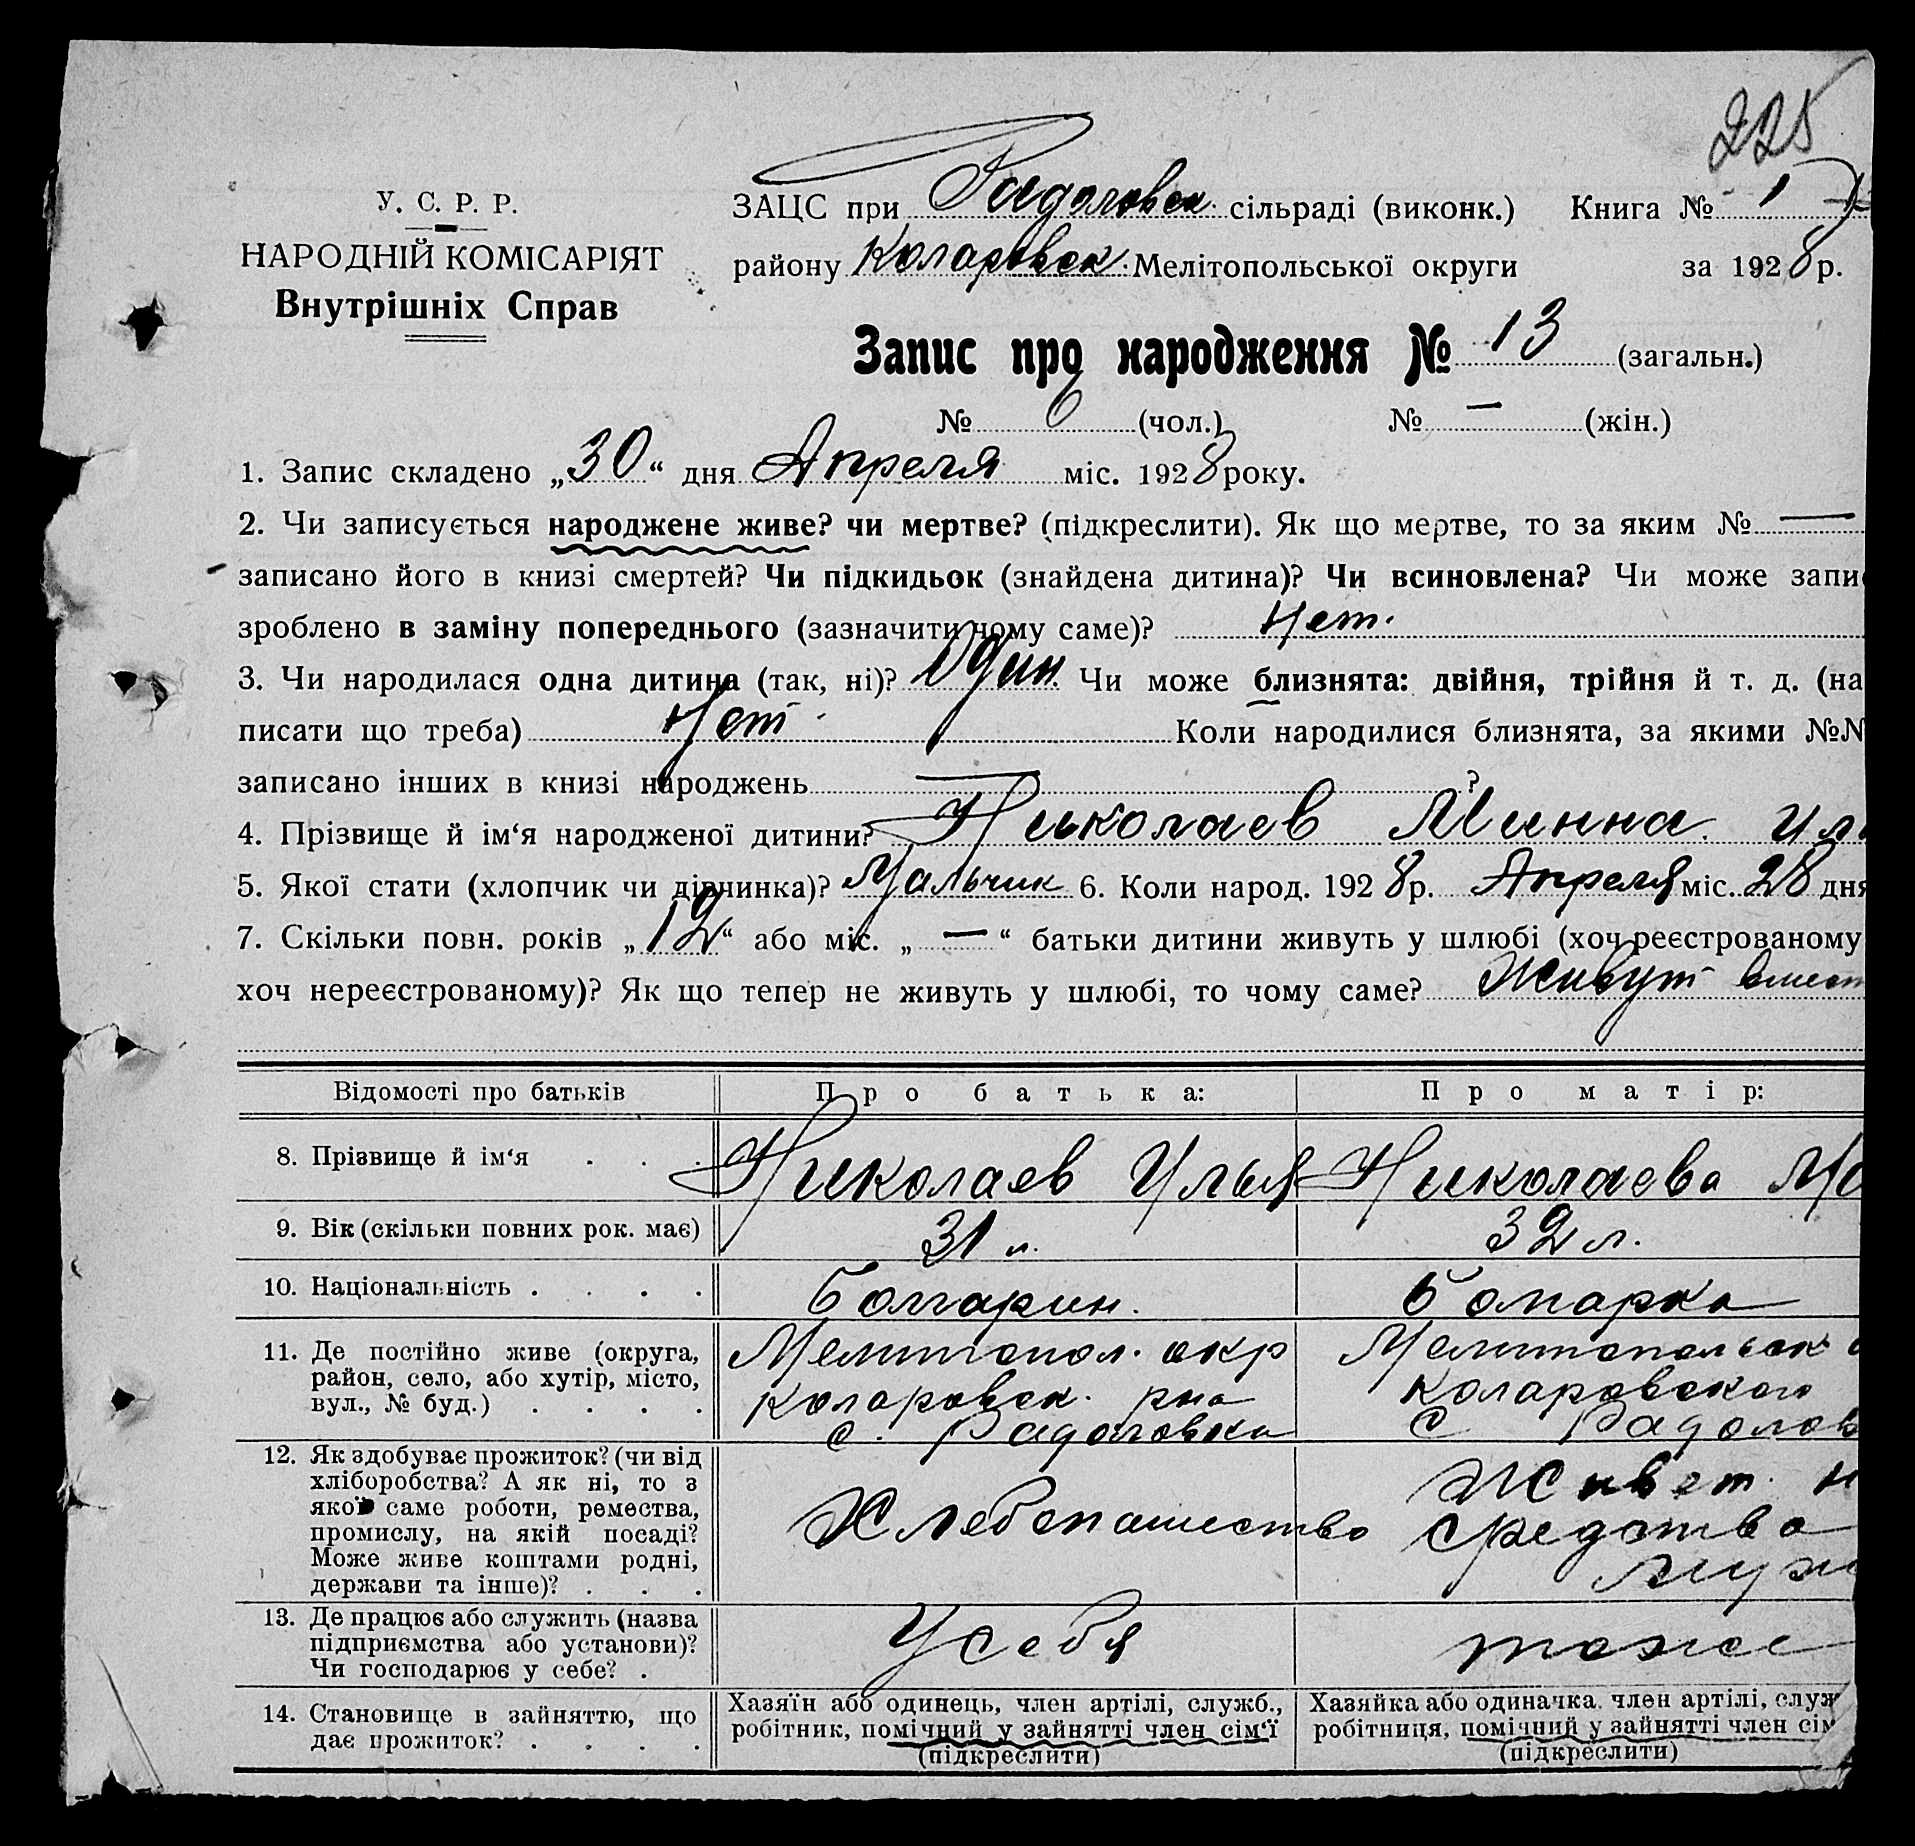 225
У. С. Р. Р.
НАРОДНІЙ КОМІСАРІЯТ
Внутрішніх Справ
ЗАЦС при Радоловск. сільраді (виконк.) Книга № 1
району Коларовск. Мелітопольської округи за 1928 р.
Запис про народження № 13 (загальн.)
№ 6 (чол.) № — (жін.)
1. Запис складено „30“ дня Апреля міс. 1928 року.
2. Чи записується народжене живе? чи мертве? (підкреслити). Як що мертве, то за яким № —
записано його в книзі смертей? Чи підкидьок (знайдена дитина)? Чи всиновлена? Чи може запи
зроблено в заміну попереднього (зазначити чому саме)? Нет.
3. Чи народилася одна дитина (так, ні)? Один. Чи може близнята: двійня, трійня й т. д. (на
писати що треба) Нет Коли народилися близнята, за якими №№
записано інших в книзі народжень — ?
4. Прізвище й ім‘я народженої дитини? Николаев Минна Иль
5. Якої стати (хлопчик чи дівчинка)? Мальчик 6. Коли народ. 1928 р. Апреля міс. 28 дня
7. Скільки повн. років „12“ або міс. „—“ батьки дитини живуть у шлюбі (хоч реєстрованому
хоч нереєстрованому)? Як що тепер не живуть у шлюбі, то чому саме? Живут вмест
Відомості про батьків Про батька: Про матір:
8. Прізвище й ім‘я . . . Николаев Илья Николаева Ма
9. Вік (скільки повних рок. має) 31 л. 32 л.
10. Національність . . . . Болгарин. Болгарка
11. Де постійно живе (округа, район, село, або хутір, місто, вул., № буд.) . . . .
Мелитопол. окр
Коларовск. рна
с. Радоловка
Мелитопольск о
Коларовского
с Радолов
12. Як здобуває прожиток? (чи від
хліборобства? А як ні, то з
якої саме роботи, ремества,
промислу, на якій посаді?
Може живе коштами родні,
держави та інше)? . . .
Хлебопашество
Живет н
средства
муж
13. Де працює або служить (назва
підприємства або установи)?
Чи господарює у себе? .
У себя
тоже
14. Становище в зайняттю, що
дає прожиток? . . . .
Хазяїн або одинець, член артілі, служб.,
робітник, помічний у зайнятті член сім‘ї
(підкреслити)
Хазяйка або одиначка, член артілі, служ
робітниця, помічний у зайнятті член сім
(підкреслити)